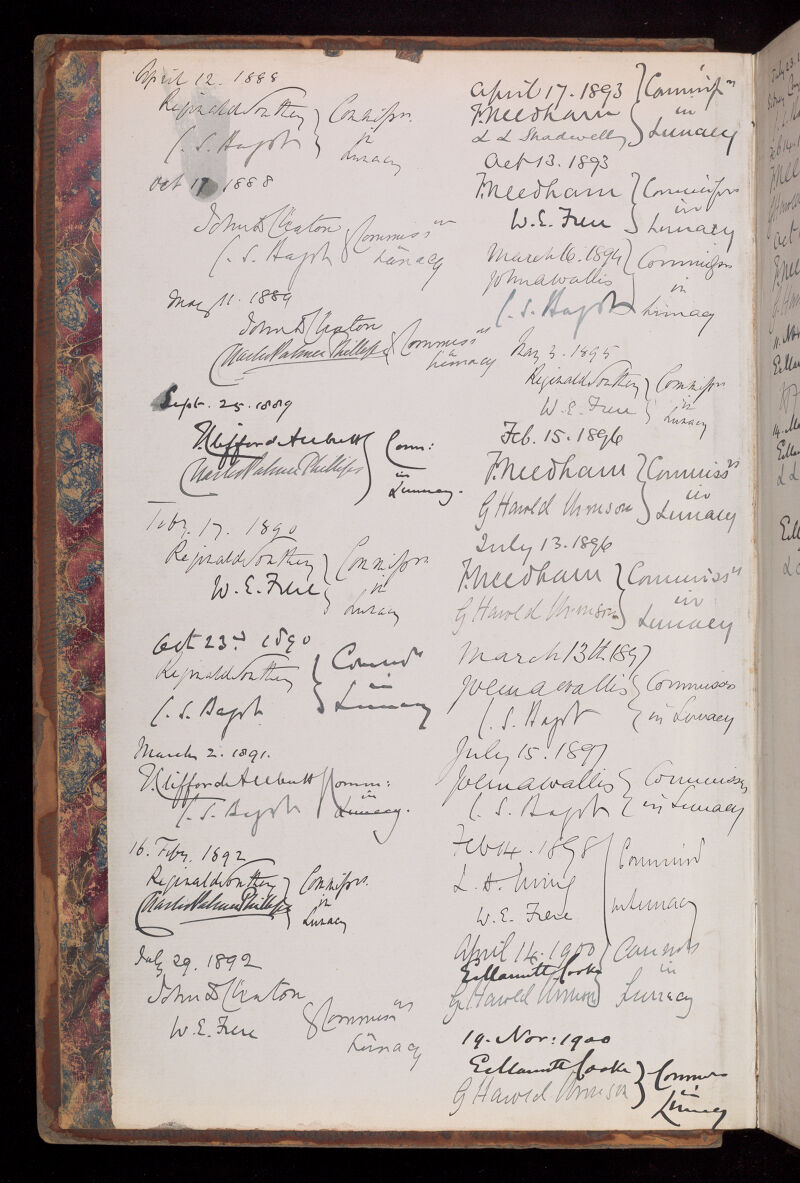 April 12. 1888
Reginald Southey
C. S. Bagot
Commissrs.
in
Lunacy
Oct 17 1888
John D Cleaton
C. S. Bagot
Commiss rs
Lunacy
May 11. 1889
John D Cleaton
Charles Palmer Phillips
Commiss rs
in
Lunacy
Sept. 25. 1889
T. Clifford Allbutt
Charles Palmer Phillips
Comm:
in
Lunacy.
Feby. 17. 1890
Reginald Southey
W. E. Frere
Commissrs
in
Lunacy
Oct 23rd 1890
Reginald Southey
C. S. Bagot
in
Lunacy
March 2. 1891.
T. Clifford Allbutt
C. S. Bagot
Comm:
in
Lunacy.
16. Feby. 1892
Reginald Southey
Charles Palmer Phillips
Commissrs.
in
Lunacy
July 29. 1892
John D Cleaton
W. E. Frere
Commiss rs
in
Lunacy
April 17. 1893
F. Needham
L L Shadwell
Commiss rs
in
Lunacy
Oct 13. 1893
F. Needham
W. E. Frere
Commissrs
in
Lunacy
March 6. 1894
John A Wallis
C. S. Bagot
Commissrs
in
Lunacy
May 3. 1895
Reginald Southey
W. E. Frere
Commissrs
in
Lunacy
Feb. 15. 1896
F. Needham
G Harold Urmson
Commiss rs
in
Lunacy
July 13. 1896
F. Needham
G Harold Urmson
Commiss rs
in
Lunacy
March 13th. 1897
John A Wallis
C. S. Bagot
Commissrs
in Lunacy
July 15. 1897
John A Wallis
C. S. Bagot
Commissrs
in Lunacy
Feb 14. 1898
W. E. Frere
in Lunacy
April 14. 1900
E Marriott Cooke
G. Harold Urmson
in
Lunacy
19. Nov: 1900
E Marriott Cooke
G Harold Urmson
in
Lunacy